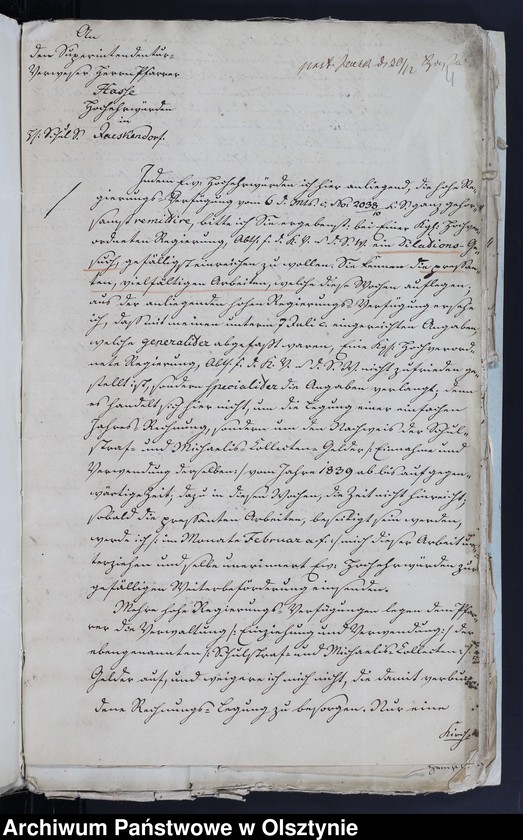 An
den Superintendentur-
Verweser Herrn Pfarrer
Hasse
Hochehrwürden
in
Raeskendorf.
Indem Ew. Hochehrwürden ich hier anliegend, die hohe Re-
gierungs-Verfügung vom 6 d. Mts. c. No: 2038 ganz gehor-
samst remittire, bitte ich Sie ergebenst: bei Einer Kgl. Hochver-
ordneten Regierung, Abth. f. d. K. V. u. d. S. W. die Dilations-Ge-
such, gefälligst einreichen zu wollen. Sie kennen die pressan-
ten, vielfältigen Arbeiten, welche diese Wochen auflegen;
aus der anliegenden hohen Regierungs-Verfügung ersehe
ich, daß mit meinen unterm 7 Juli c. eingereichten Angaben
welche generaliter abgefaßt waren, Eine Kgl. Hochverord-
nete Regierung, Abth. f. d. K. V. u. d. S. W. nicht zufrieden ge-
stellt ist, sondern specialiter die Angaben verlangt; denn
es handelt sich hier nicht, um die Legung einer einfachen
Jahres Rechnung, sondern um den Nachweis der Schul-
straf- und Michaelis-Collecten-Gelder /: Einnahme und
Verwendung derselben :/ vom Jahre 1839 ab bis auf gegen-
wärtige Zeit, dazu in diesen Wochen, die Zeit nicht hinreicht;
sobald die pressanten Arbeiten, beseitigt sein werden,
werd ich /: im Monate Februar a. f. :/ mich dieser Arbeit un-
terziehen und selbe unerinnert Ew. Hochehrwürden zur
gefälligen Weiterbeförderung einsenden.
Mehre hohe Regierungs-Verfügungen legen den Pfar-
rer die Verwaltung /: Einziehung und Verwendung :/ der
ebengenannten /: Schulstraf- und Michaelis Collecten :/
Gelder auf, und weigere ich mich nicht, die damit verbun-
dene Rechnungs-Legung zu besorgen. Nur eine
Kirch
Archiwum Państwowe w Olsztynie